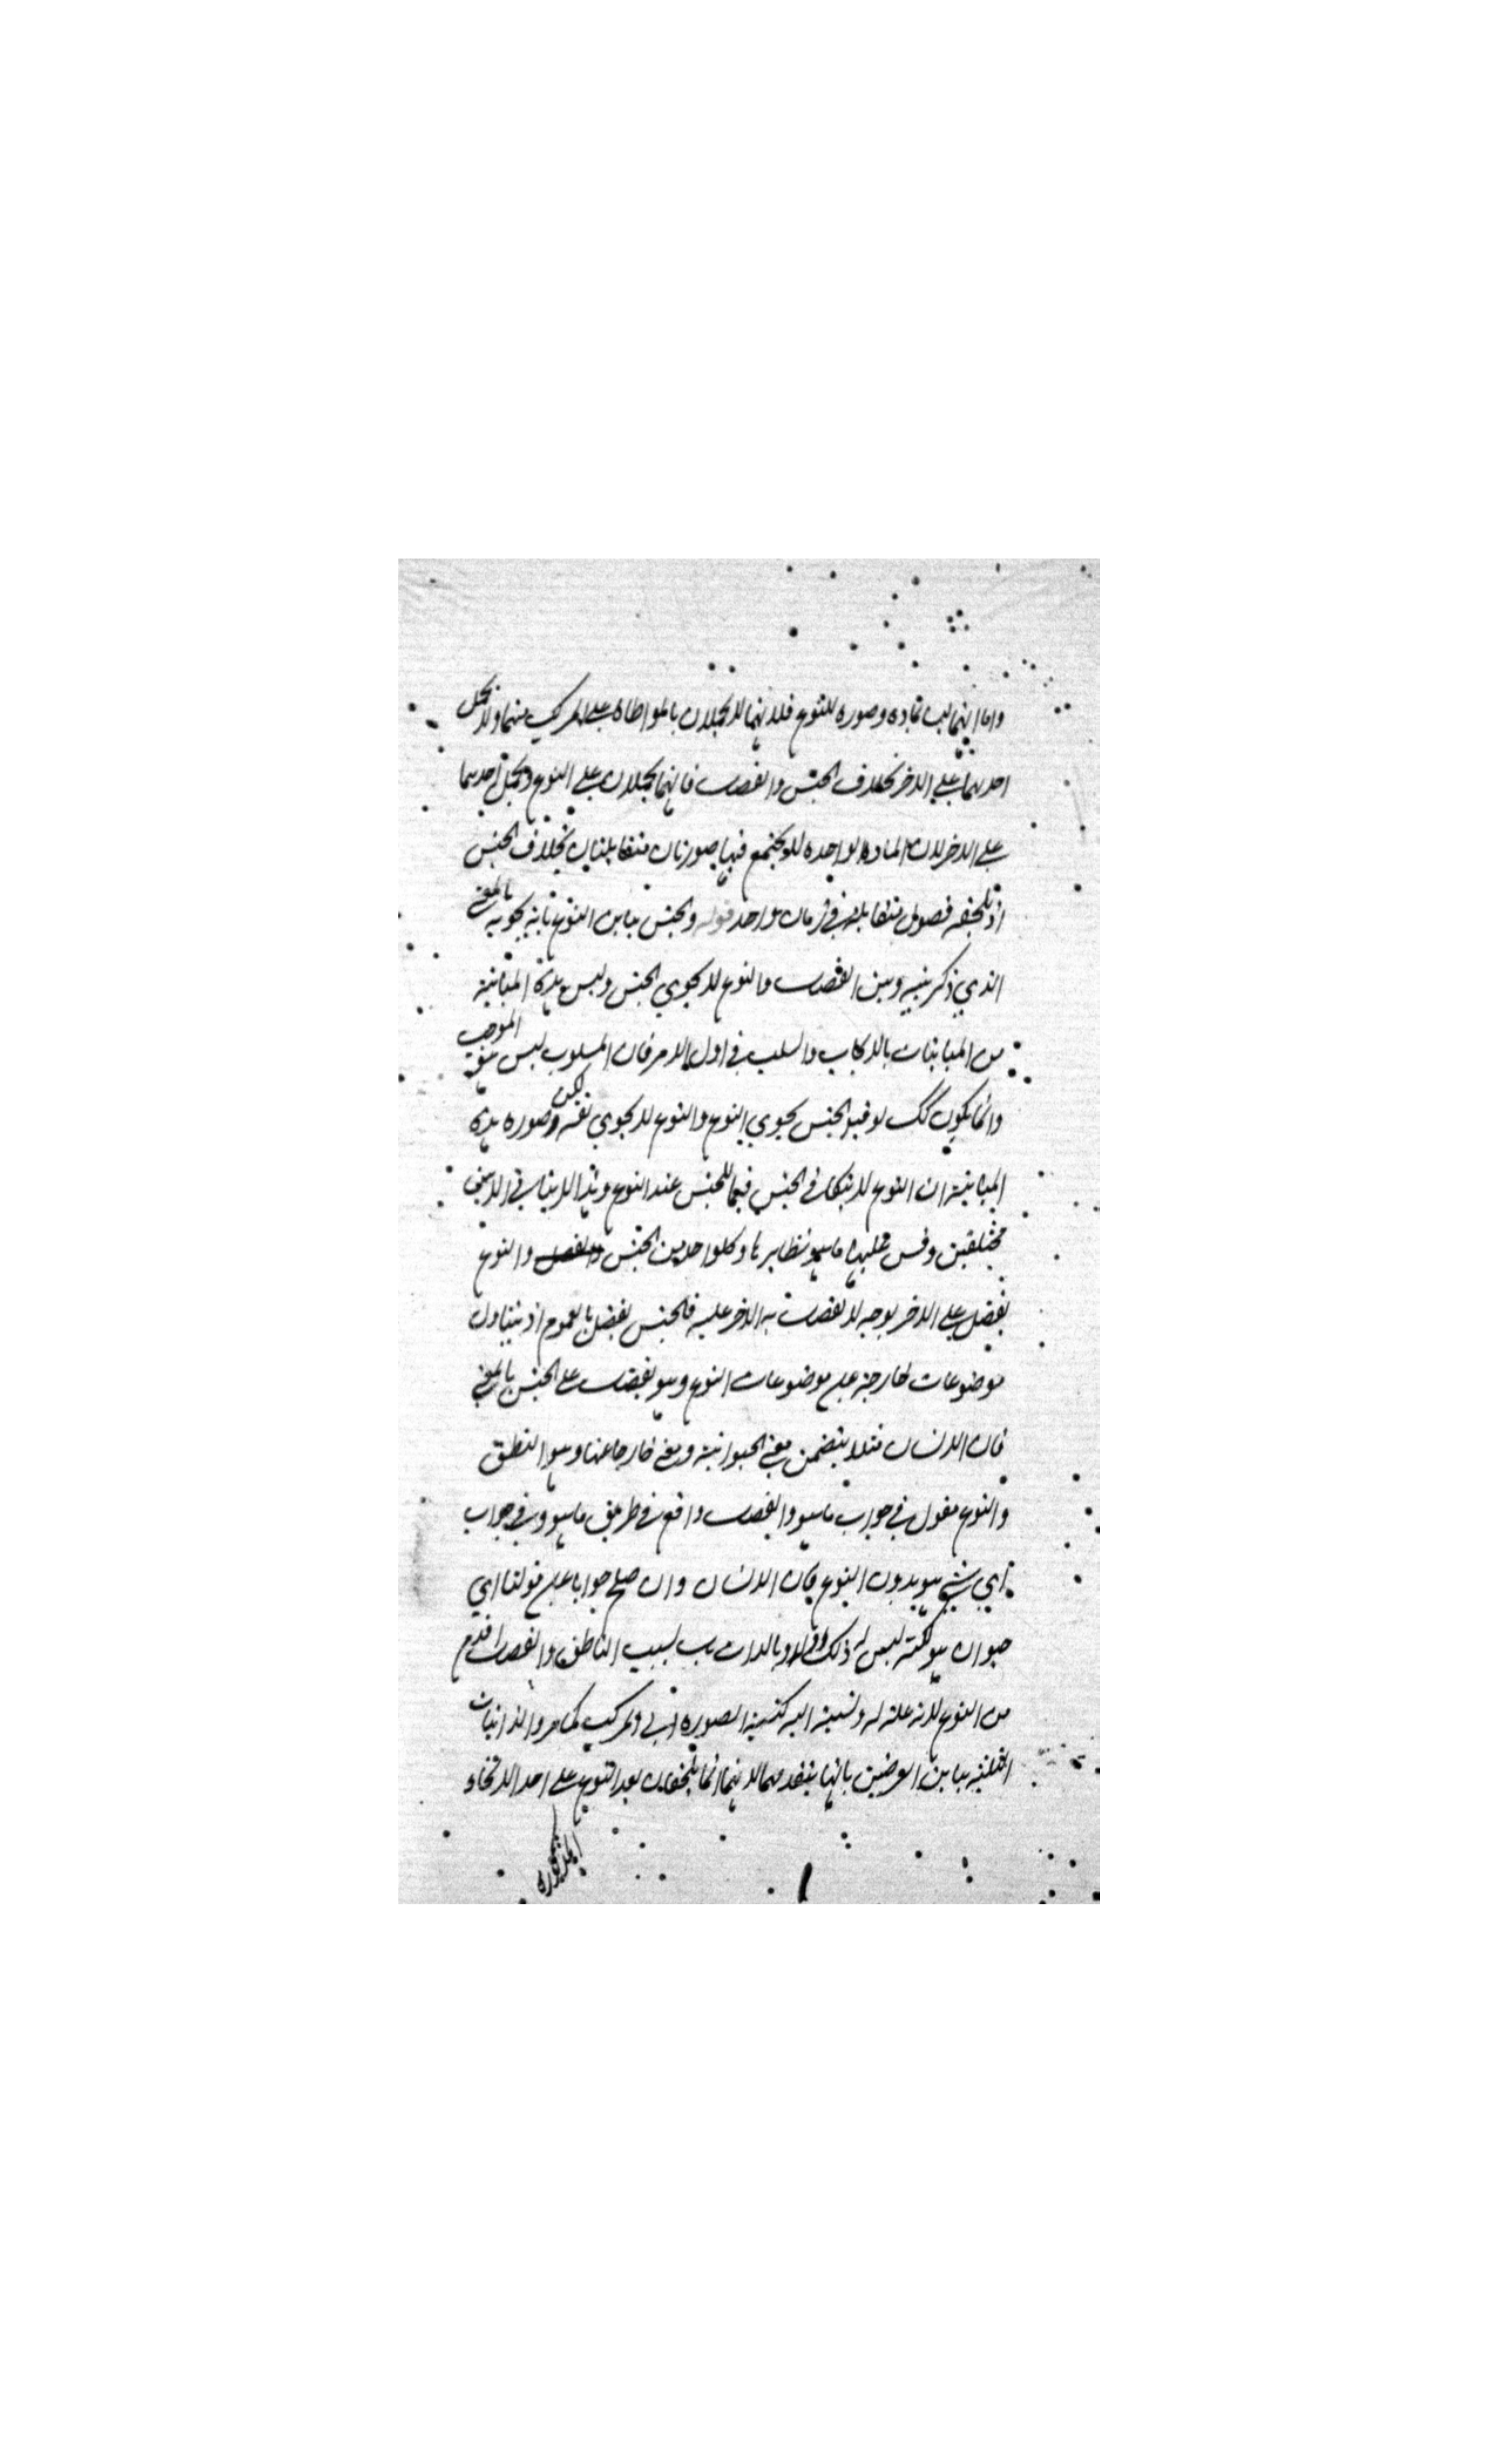 واما انهما ليسا بمادة وصورة للنوع فلانهما لا يحملان بالمواطاة على المركب منهما ولا يحمل
احدهما على الاخر بخلاف الجنس والفصل فانهما يحملان على النوع ويحمل احدهما
على الاخر لان المادة الواحدة لا يجتمع فيها صورتان متقابلتان بخلاف الجنس
اذ يلحقه فصول متقابلة في زمان واحد قوله والجنس يباين النوع بانه يحويه بالمعنى
الذي ذكر بينه وبين الفصل والنوع لا يحوي الجنس وليس هذه المباينة
من المباينات بالايجاب والسلب في اول الامر فان المسلوب ليس الموجب
وانما يكون كك لو قيل الجنس يحوي النوع والنوع لا يحوي نفسه لكن صورة هذه
المباينة ان النوع لا الجنس فيما للجنس عند النوع وهذا
مختلفين وقس عليها ما هو نظايرها وكل واحد من الجنس والنوع
يفضل على الاخر بوجه لا يفضل به الاخر عليه فالجنس يفضل بالعموم اذ يتناول
موضوعات خارجة عن موضوعات النوع وهو يفضل على الجنس بالمعنى
فان الانسان مثلا يتضمن معنى الحيوانية ومعنى خارجا عنها وهو النطق
والنوع مقول في جواب ما هو والفصل واقع في طريق ما هو وفي جواب
اي شيء هو بدون النوع فان الانسان وان صلح جوابا عن قولنا اي
حيوان هو لكنه ليس له ذلك اولا وبالذات بل بسبب الناطق والفصل اقدم
من النوع لانه علة له ونسبته اليه كنسبة الصورة الى المركب كما مر والذاتيات
الثلثة يباين العرضين بانها يتقدمهما لانهما انما يلحقان بعد التنوع على احد الانحاء
المذكورة